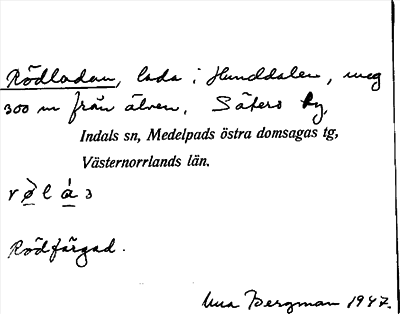 Rödladan, lada i Hunddalen,
300 m från älven. Säters by,
Indals sn, Medelpads östra domsagas tg,
Västernorrlands län.
Rödfärgad.
Bergman 1947.